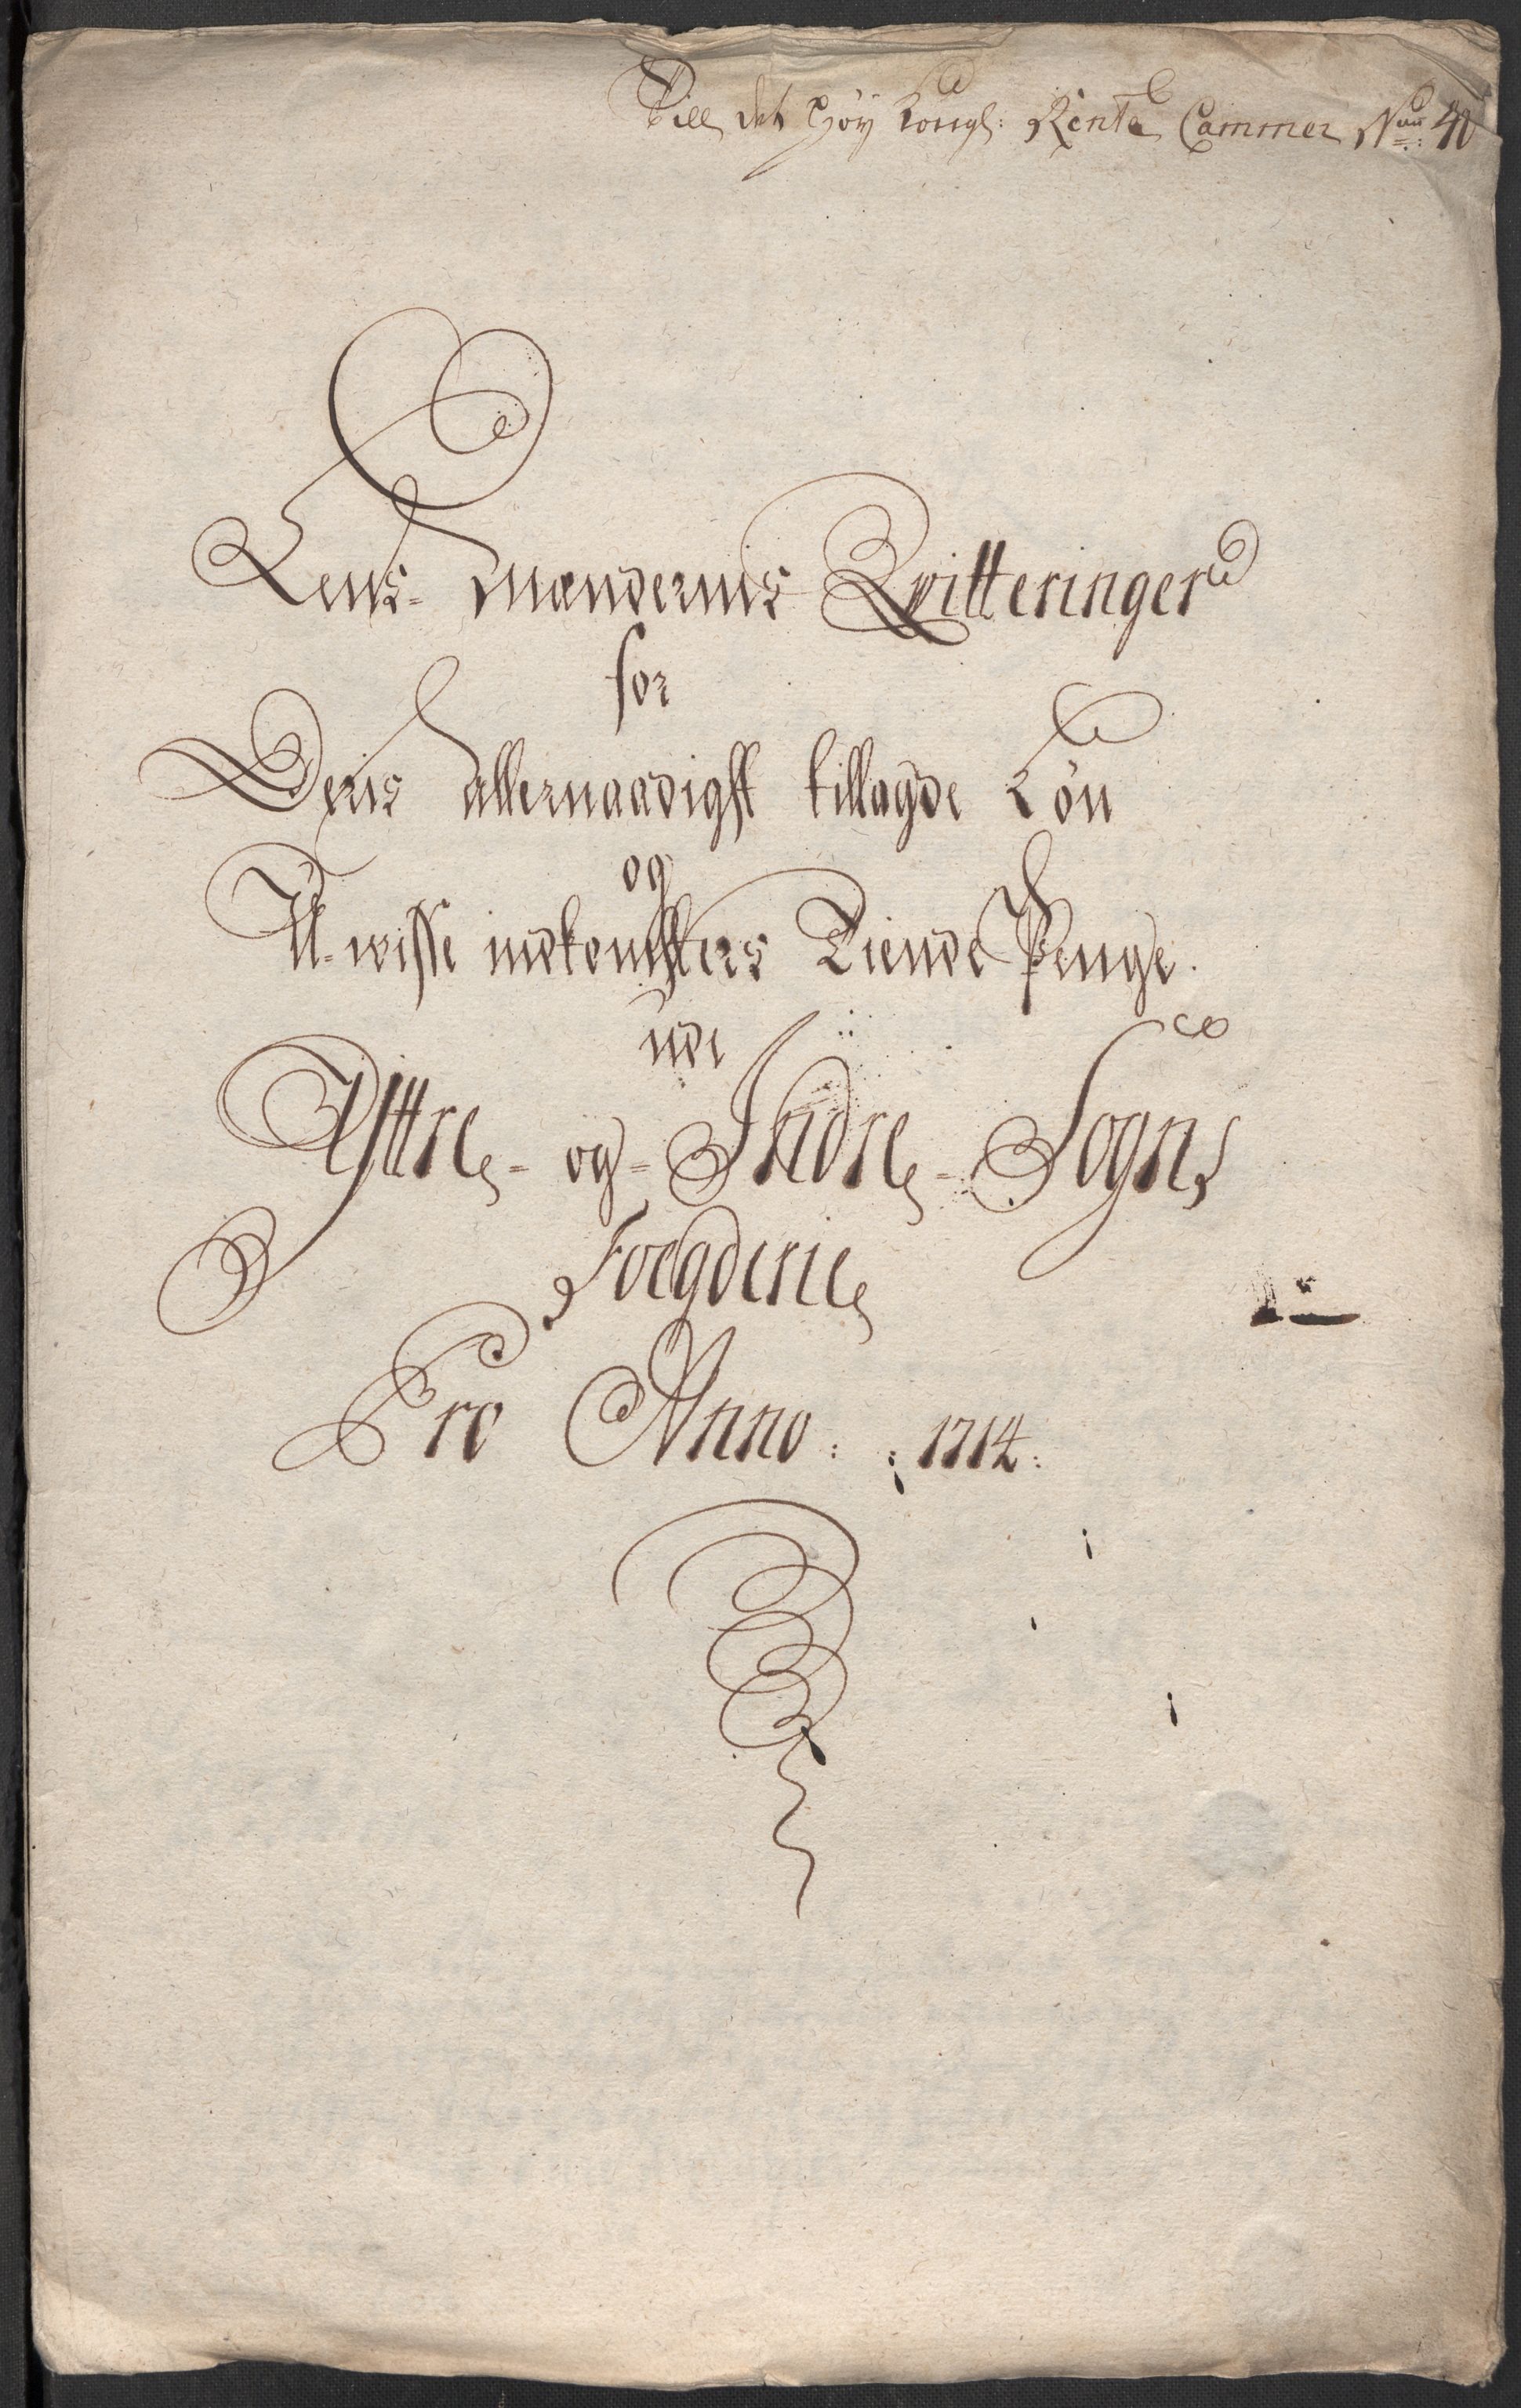 Till det Høy Kongl: Rente Cammer No: 40
Lens- mændernis Qvitteringer
for
Deris allernaadigst tillagde Løn
og
U-wisse indkomsters Tiende Penge.
udi
Yttre- og- Indre- Sogns
Foegderie
Pro Anno: :1714: